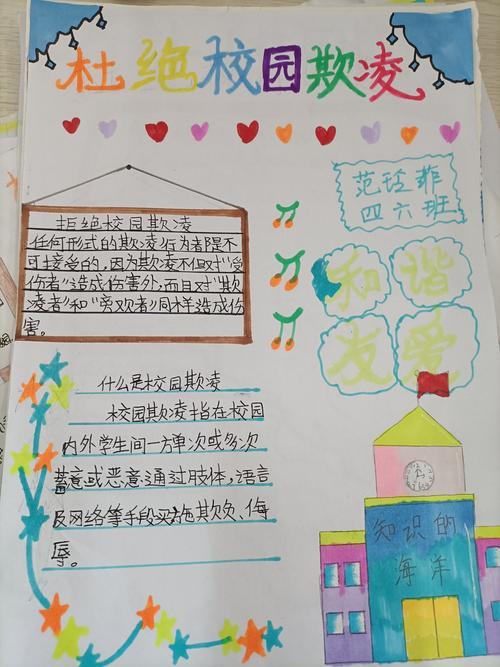 杜绝校园欺凌
范玲菲
四六班
拒绝校园欺凌
任何形式的欺凌行为都是不
可接受的，因为欺凌不但对“受
伤者”造成伤害外，而且对“欺
凌者”和“旁观者”同样造成伤
害。
和谐
友爱
什么是校园欺凌
校园欺凌指在校园
内外学生间一方单次或多次
蓄意或恶意通过肢体，语言
及网络等手段实施欺负、侮
辱。
知识的
海洋